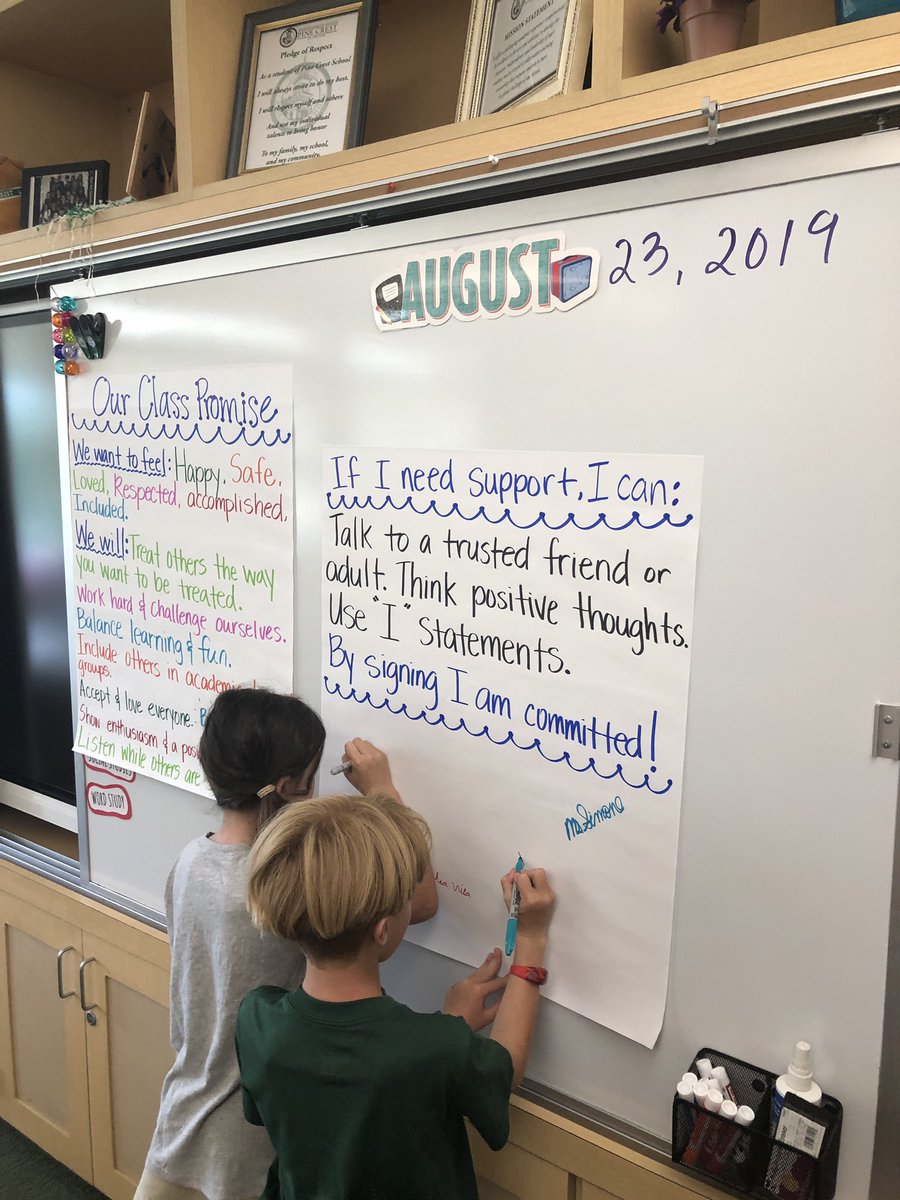 PINE CREST
Pledge of Respect
As a student of Pine Crest School
I will always strive to do my best,
I will respect myself and others
And use my individual
talents to bring honor
To my family, my school,
and my community.
MISSION STATEMENT
AUGUST 23, 2019
Our Class Promise
We want to feel: Happy, Safe,
Loved, Respected, accomplished,
Included.
We will: Treat others the way
you want to be treated.
Work hard & challenge ourselves.
Balance learning & fun.
Include others in academic
groups.
Accept & love everyone.
Show enthusiasm & a
Listen while others are
SOCIAL STUDIES
WORD STUDY
If I need support, I can:
Talk to a trusted friend or
adult. Think positive thoughts.
Use "I" Statements.
By signing I am committed!
Ms. Simone
Vila